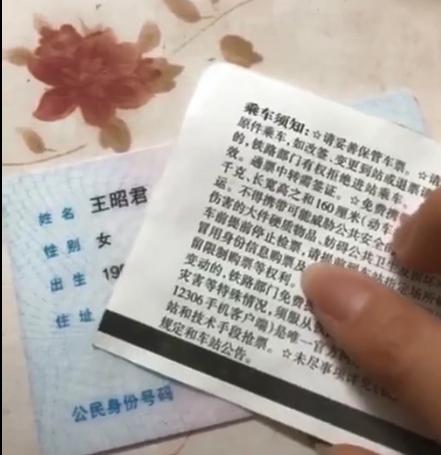 姓名 王昭君
性别 女
出生 199
住址
公民身份号码
乘车须知：☆请妥善保管车票。☆请
原件乘车，如改签、变更到站或退票请
的，铁路部门有权拒绝进站乘车。
效。通票中转需签证。☆免费携
千克，长宽高之和160厘米（动车
运。不得携带可能威胁公共安全的
伤害的大件硬质物品、妨碍公共卫生
车前提前停止检票，请提前到车站指定场所
冒用身份信息购票及
留限制购票等权利。
变动的，铁路部门免费
灾害等特殊情况，须服从
12306手机客户端）是唯一官方
站和技术手段抢票。☆未尽事项详见
规定和车站公告。